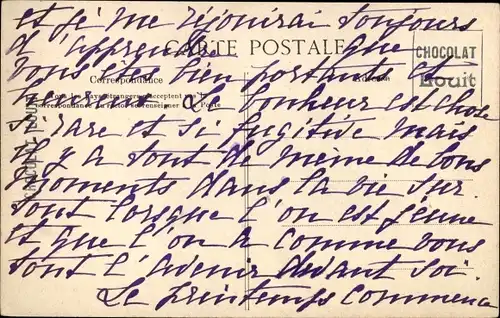 et je me réjouirai toujours
d'apprendre que
CARTE POSTALE
CHOCOLAT
Louit
vous êtes bien portante et
Correspondance
Adresse
Tous les Pays étrangers n'acceptent pas la
Correspondance au recto se renseigner à la Poste
heureuse. Le bonheur est chose
si rare et si fugitive mais
il y a tout de même de bons
moments dans la vie sur-
tout lorsque l'on est jeune
et que l'on a comme vous
tout l'avenir devant soi.
Le printemps commence
CHOCOLAT LOUIT